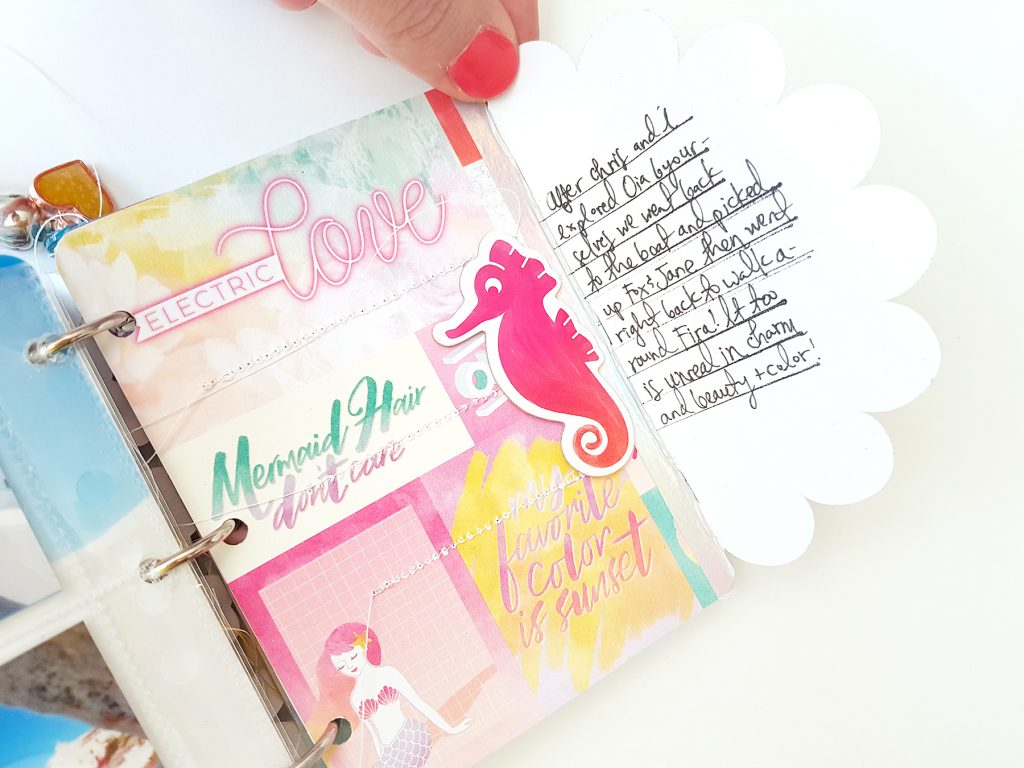 ELECTRIC love
Mermaid Hair
don't care
my
favorite
color
is sunset
After chris and i
explored Oia by our-
selves we went back
to the boat and picked
up Fox & Jane then went
right back to walk a-
round Fira! It too
is unreal in charm
and beauty + color!